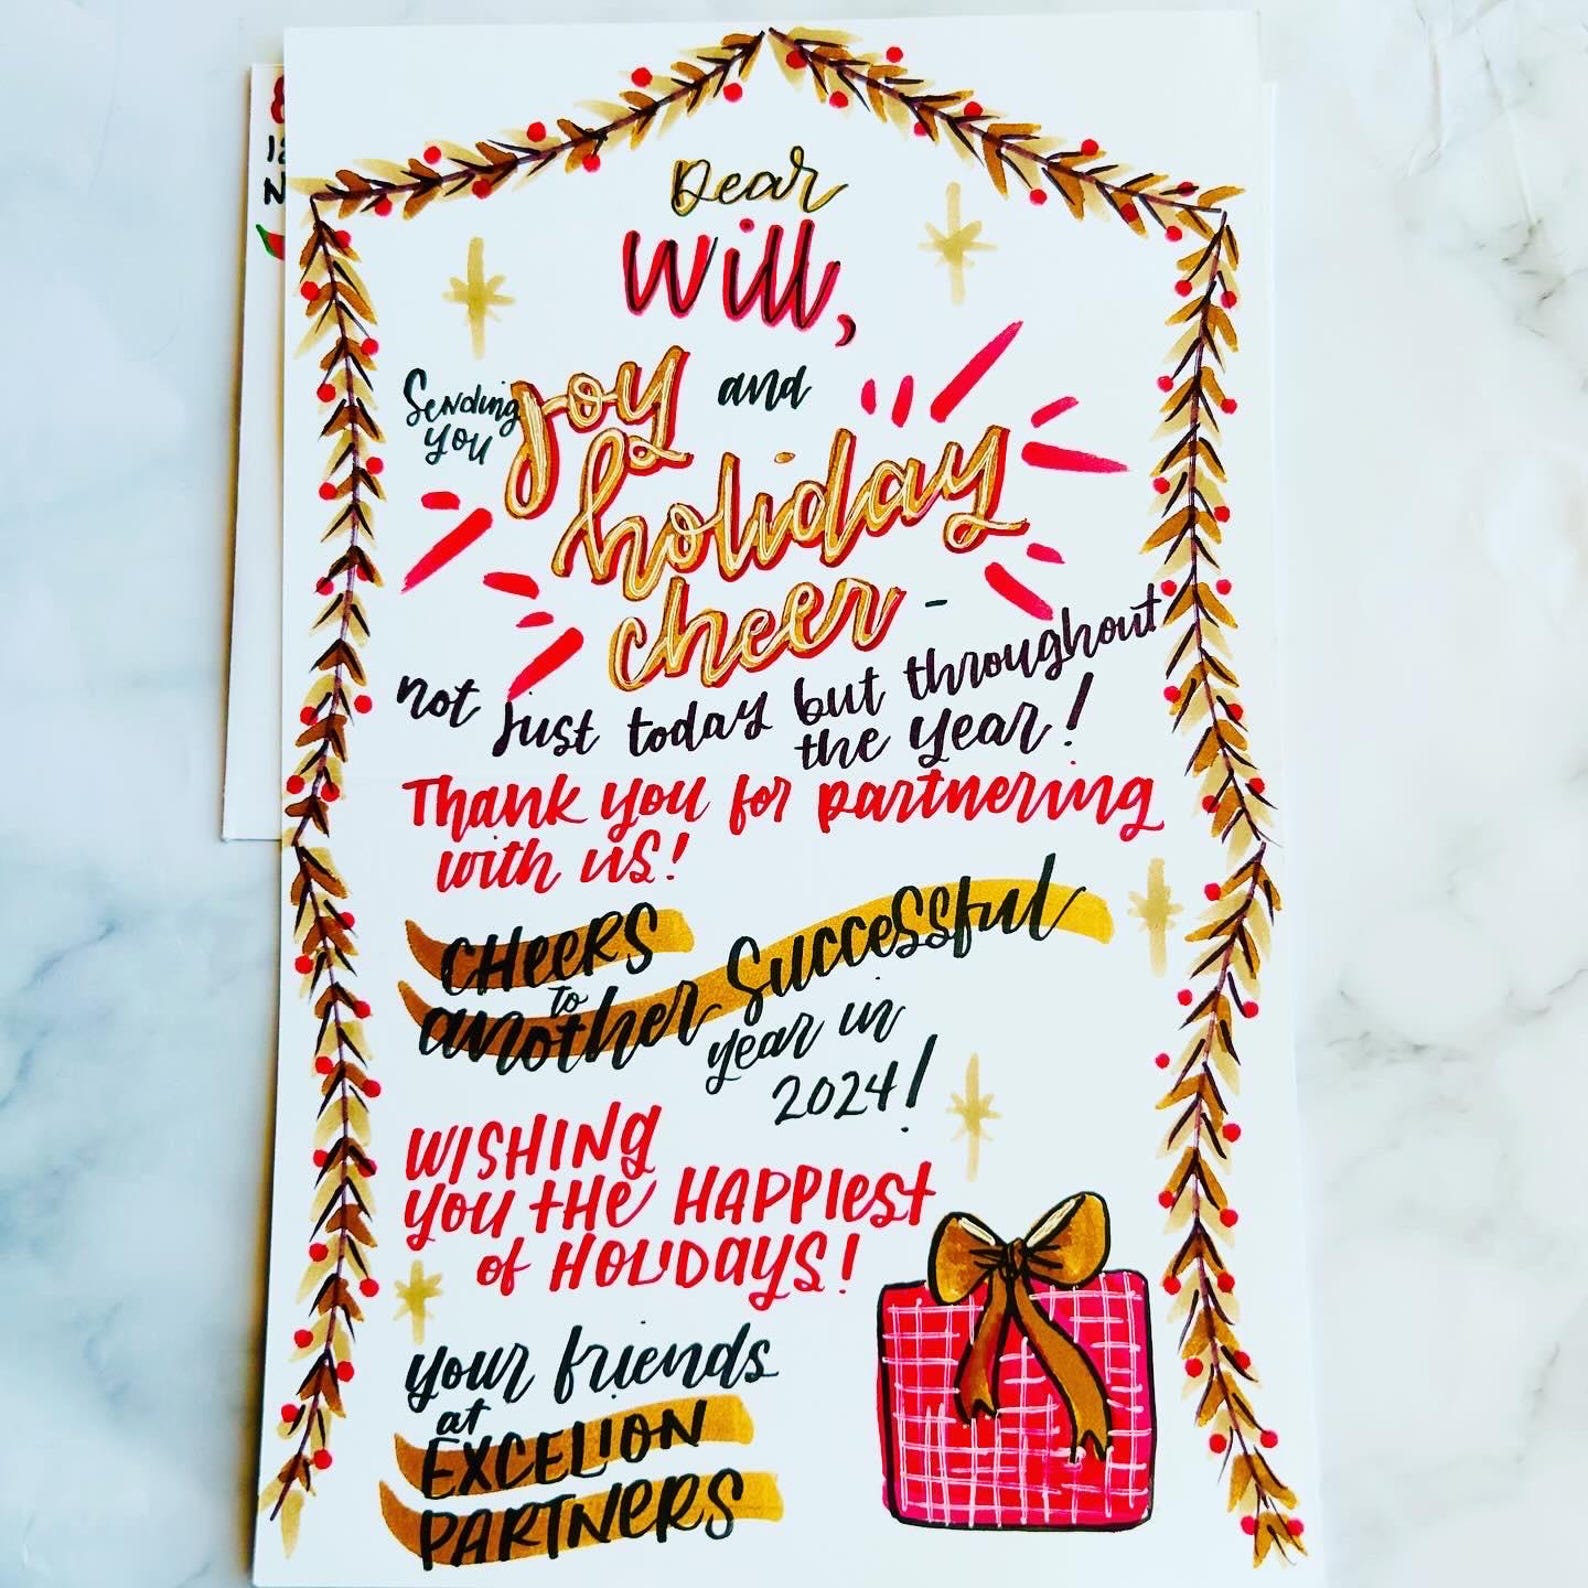 Dear
Will,
Sending you joy and
holiday
cheer -
not just today but throughout
the year!
Thank you for partnering
with us!
CHEERS
to
another Successful
year in
2024!
WISHING
YOU THE HAPPIEST
of HOLIDAYS!
your friends
at
EXCELION
PARTNERS